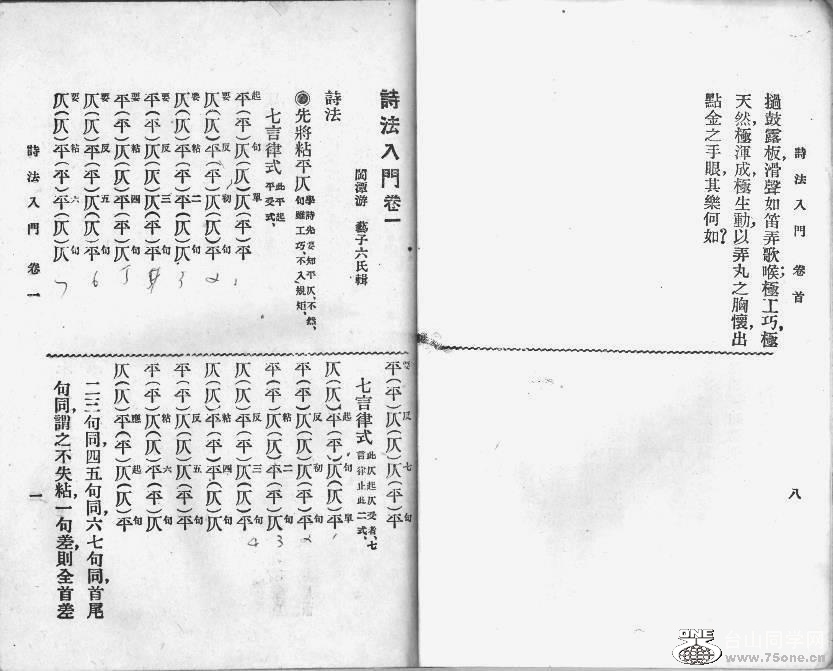 詩法入門 卷首
撾鼓露板,滑聲如笛弄歌喉;極工巧,極
天然,極渾成,極生動,以弄丸之胸懷,出
點金之手眼,其樂何如?
八
詩法入門卷一
閩潭游 藝子六氏輯
詩法
◉先將粘平仄 學詩先要知平仄,不然,句雖工巧,不入規矩,
七言律式 此平起平受式,
平(平)仄(仄)仄平平 起句單
仄(仄)平平(仄)仄平 要反初句
仄(仄)平平平仄仄 要粘二句
平(平)仄(仄)仄平平 要反三句
平(平)仄(仄)平平仄 要粘四句
仄(仄)平平(仄)仄平 要反五句
仄(仄)平平平仄仄 要粘六句
平(平)仄(仄)仄平平 要反七句
七言律式 此仄起仄受者,七言律止此二式,
仄(仄)平(平)(仄)仄平 起句單
平(平)仄(仄)仄(平)平 反初句
平(平)仄(仄)(平)平仄 粘二句
仄(仄)平(平)(仄)仄平 反三句
仄(仄)平(平)平(仄)仄 粘四句
平(平)仄(仄)仄(平)平 反五句
平(平)仄(仄)平(平)仄 粘六句
仄(仄)平(平)仄(仄)平 應起句
二三句同,四五句同,六七句同,首尾
句同,謂之不失粘,一句差,則全首差
詩法入門 卷一
一
ONE
台山同学网
www.75one.cn